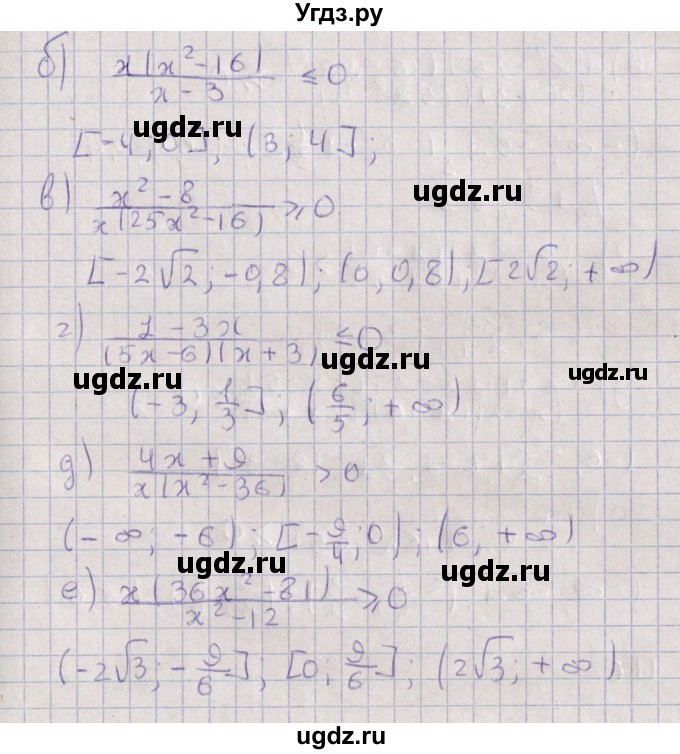 Угдз.ру
б) x(x² - 16) / x - 3 ≤ 0
ugdz.ru
[-4, 0]; (3; 4];
ugdz.ru
в) x² - 8 / x(25x² - 16) ≥ 0
[-2√2; -0,8); (0, 0,8); [2√2; +∞)
г) 1 - 3x / (5x - 6)(x + 3) ≤ 0
ugdz.ru ugdz.ru
(-3, 1/3]; (6/5; +∞)
д) 4x + 9 / x(x² - 36) > 0
(-∞; -6); [-9/4; 0); (6, +∞)
ugdz.ru ugdz.ru
е) x(36x² - 81) / x² - 12 ≥ 0
(-2√3; -9/6]; [0; 9/6]; (2√3; +∞)
ugdz.ru ugdz.ru